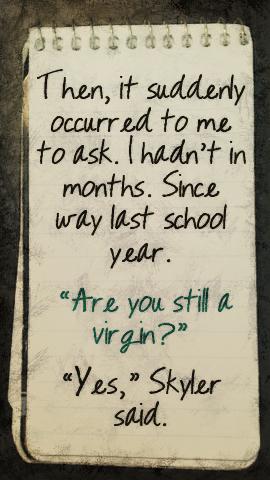 Then, it suddenly
occurred to me
to ask. I hadn't in
months. Since
way last school
year.
"Are you still a
virgin?"
"Yes," Skyler
said.